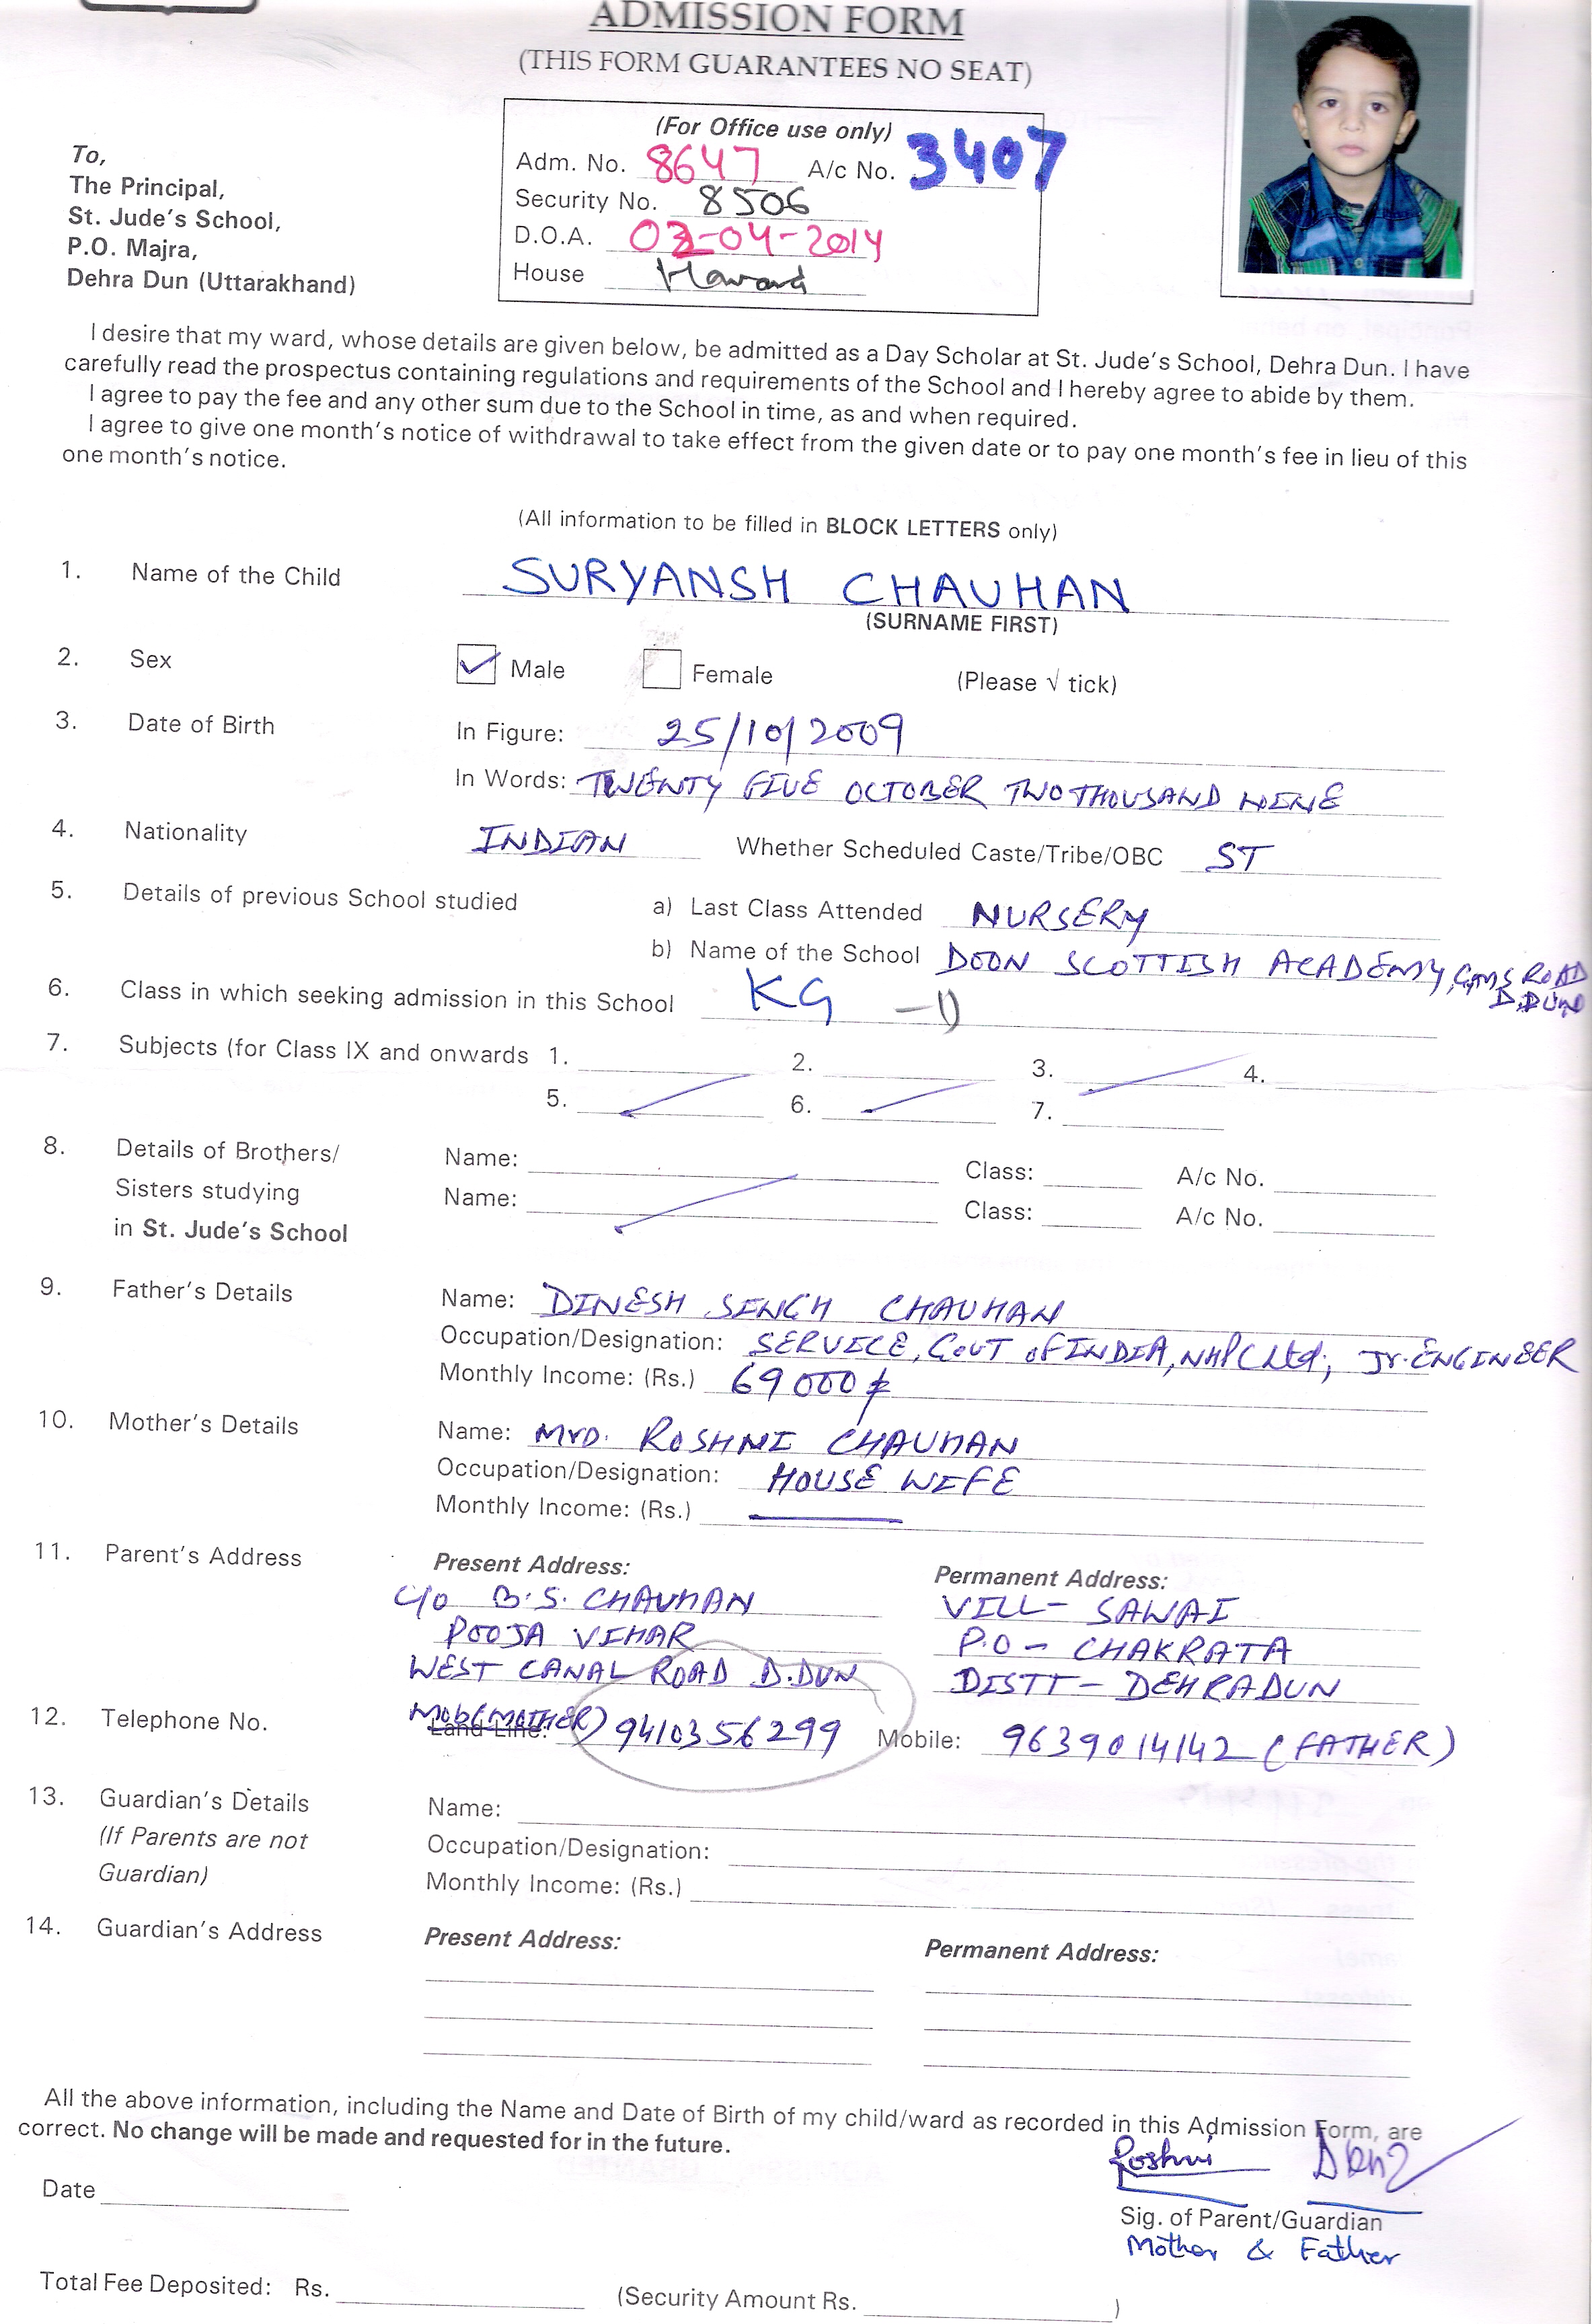 ADMISSION FORM
(THIS FORM GUARANTEES NO SEAT)
To,
The Principal,
St. Jude's School,
P.O. Majra,
Dehra Dun (Uttarakhand)
(For Office use only)
Adm. No. 8647 A/c No. 3407
Security No. 8506
D.O.A. 02-04-2014
House
I desire that my ward, whose details are given below, be admitted as a Day Scholar at St. Jude's School, Dehra Dun. I have
carefully read the prospectus containing regulations and requirements of the School and I hereby agree to abide by them.
I agree to pay the fee and any other sum due to the School in time, as and when required.
I agree to give one month's notice of withdrawal to take effect from the given date or to pay one month's fee in lieu of this
one month's notice.
(All information to be filled in BLOCK LETTERS only)
1. Name of the Child SURYANSH CHAUHAN
(SURNAME FIRST)
2. Sex Male Female (Please √ tick)
3. Date of Birth In Figure: 25/10/2009
In Words: TWENTY FIVE OCTOBER TWO THOUSAND NINE
4. Nationality INDIAN Whether Scheduled Caste/Tribe/OBC ST
5. Details of previous School studied a) Last Class Attended NURSERY
b) Name of the School DOON SCOTTISH ACADEMY, GMS ROAD
D.DUN
6. Class in which seeking admission in this School KG
7. Subjects (for Class IX and onwards 1. 2. 3. 4.
5. 6. 7.
8. Details of Brothers/ Name: Class: A/c No.
Sisters studying Name: Class: A/c No.
in St. Jude's School
9. Father's Details Name: DINESH SINGH CHAUHAN
Occupation/Designation: SERVICE, GOVT OF INDIA, NHPC Ltd, Jr. ENGINEER
Monthly Income: (Rs.) 69000
10. Mother's Details Name: Mrs. ROSHNI CHAUHAN
Occupation/Designation: HOUSE WIFE
Monthly Income: (Rs.)
11. Parent's Address Present Address: Permanent Address:
C/o B.S. CHAUHAN VILL- SAWAI
POOJA VIHAR P.O - CHAKRATA
WEST CANAL ROAD D.DUN DISTT - DEHRADUN
12. Telephone No. Land Line: Mob(MOTHER) 9410356299 Mobile: 9639014142 (FATHER)
13. Guardian's Details Name:
(If Parents are not Occupation/Designation:
Guardian) Monthly Income: (Rs.)
14. Guardian's Address Present Address: Permanent Address:
All the above information, including the Name and Date of Birth of my child/ward as recorded in this Admission Form, are
correct. No change will be made and requested for in the future.
Roshni
Date
Sig. of Parent/Guardian
Mother & Father
Total Fee Deposited: Rs. (Security Amount Rs. )